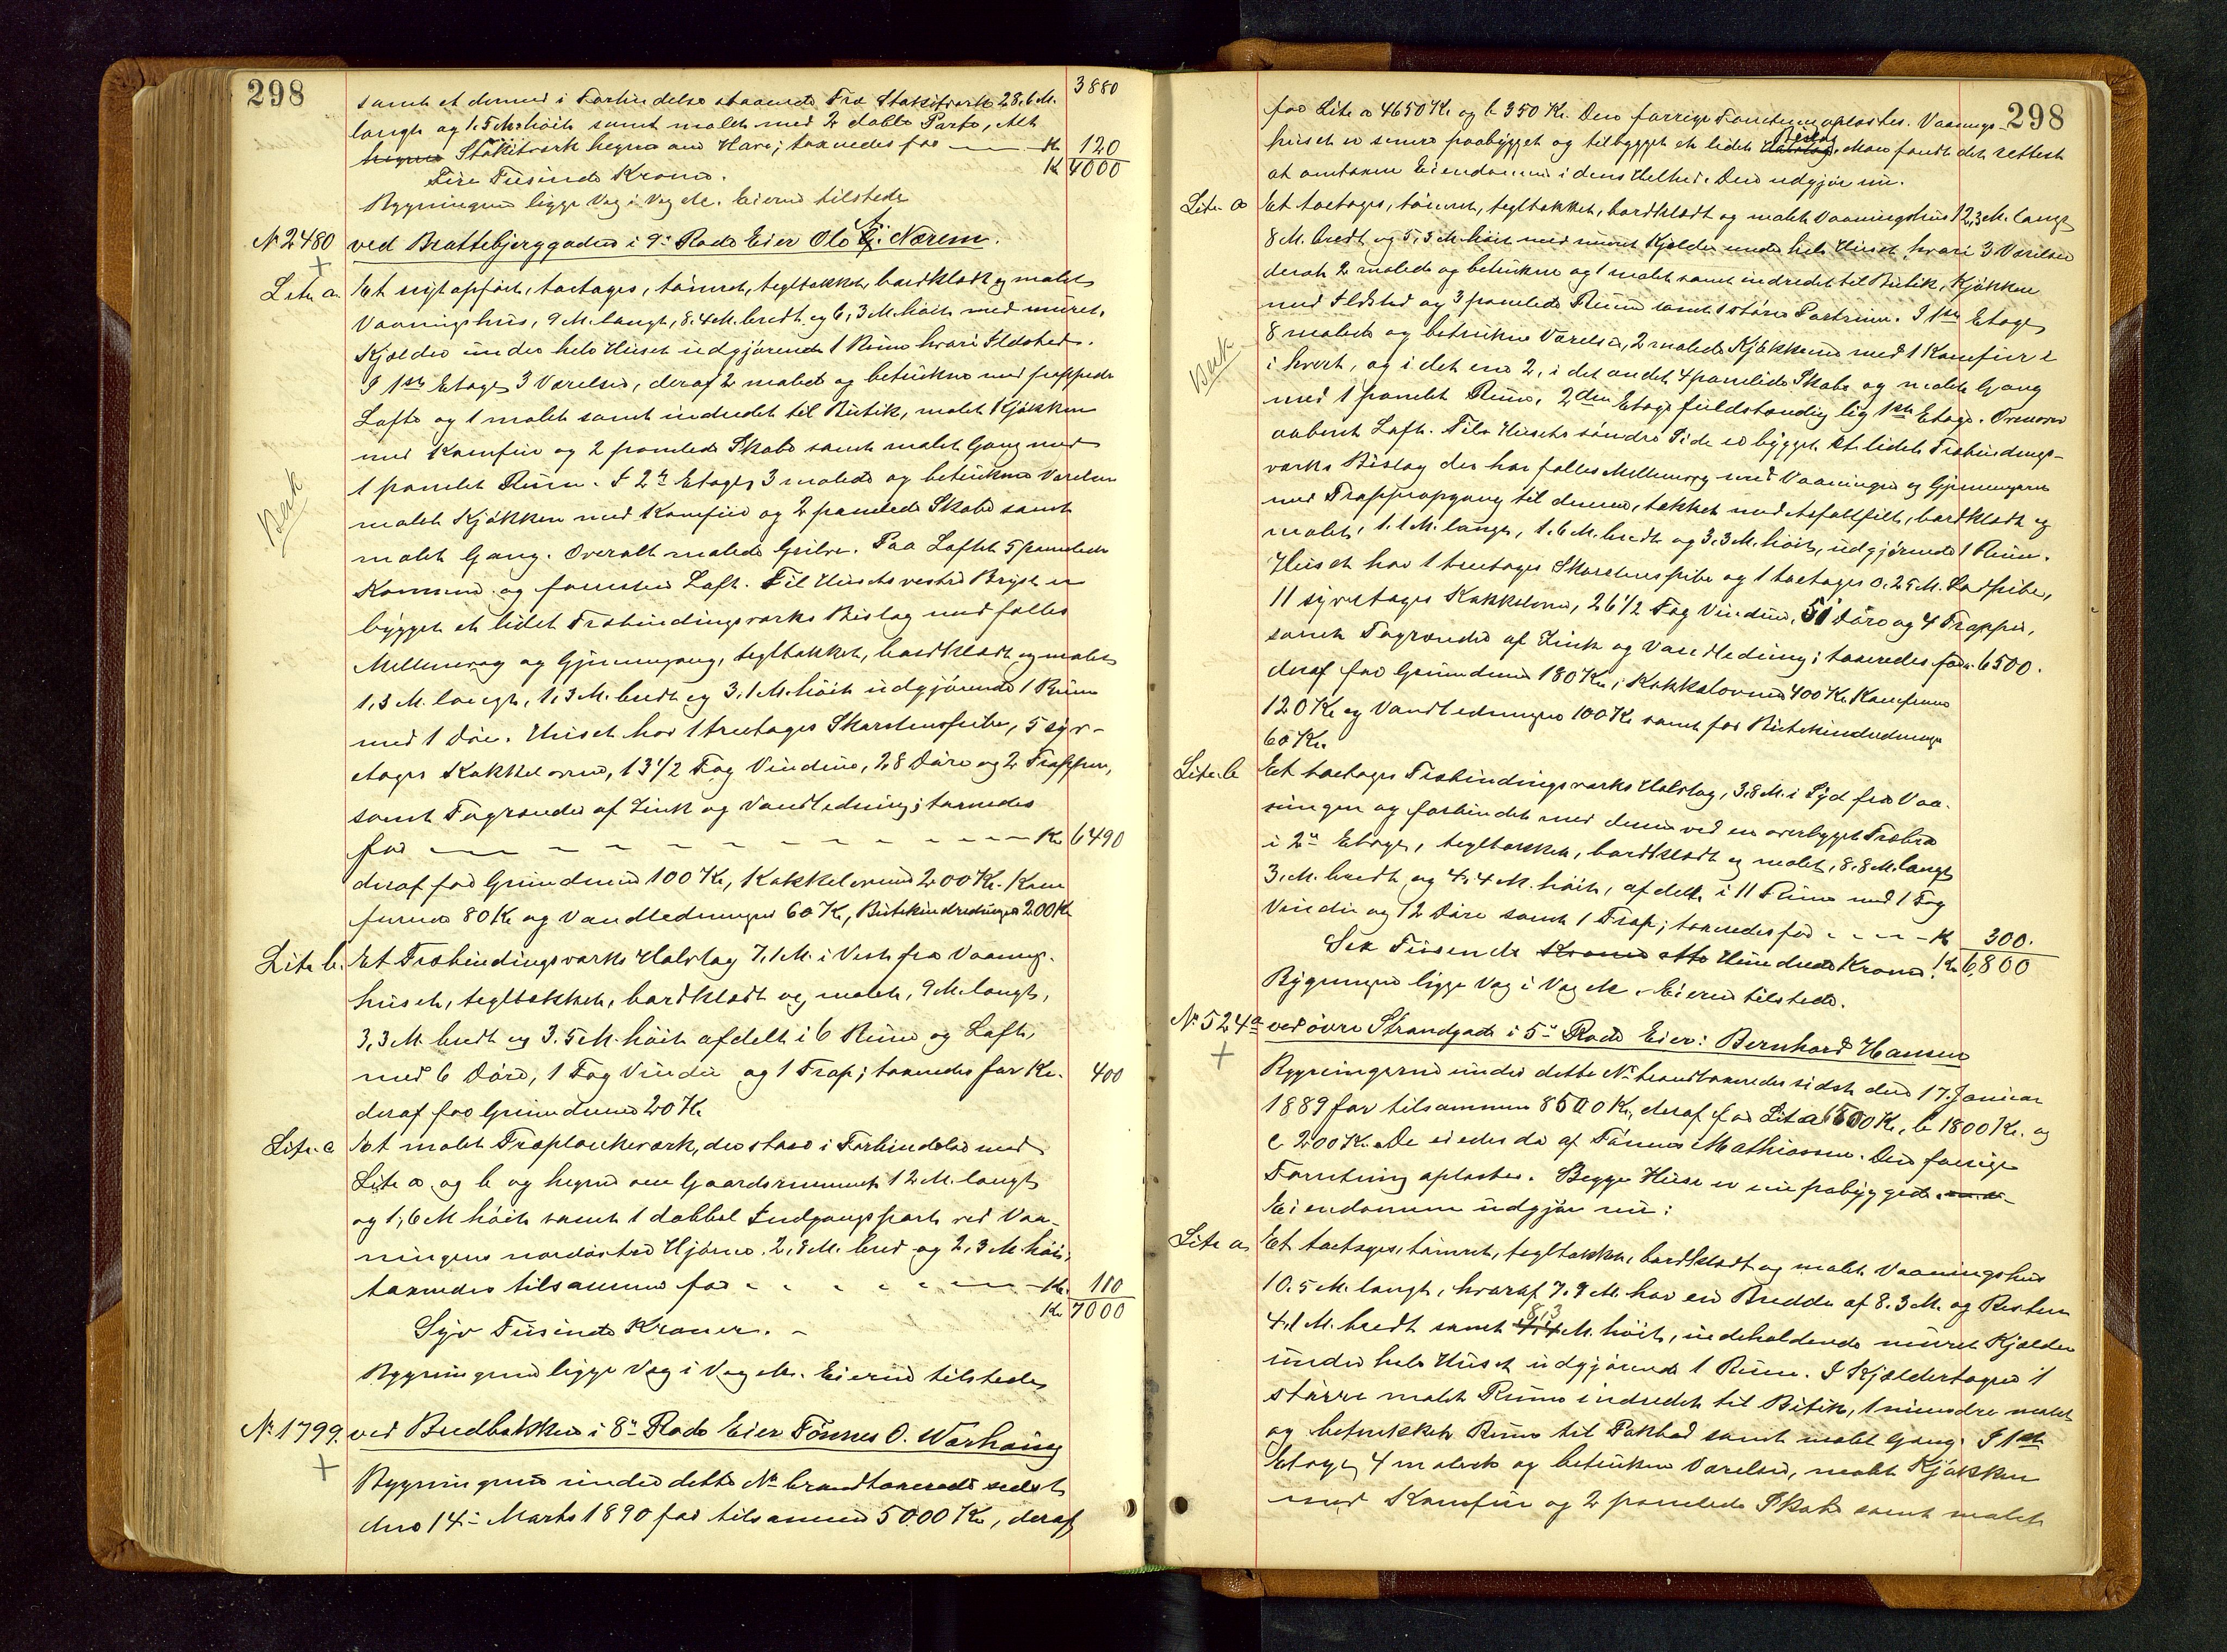 298
3880
samt et dermed i Forbindelse staaende Træ Stakitværk 28,6 M.
langt og 1.5 M. höit samt malet med 2 doble Porte, Alt
Stakitværk hegner om Have; taxeredes for — Kr 120
Fire Tusinde Kroner. Kr 4000
Bygningerne ligge Væg i Væg &c. Eieren tilstede
No 2480 ved Brattebjerggaden i 9de Rode Eier Ole A. Nærem.
Litr a. Et nyt opfört, toetages, tömret, tegltækket, bordklædt og malet
Vaaningshus, 9 M. langt, 8.4 M. bredt og 6,3 M. höit med muret
Kjælder under hele Huset udgjörende 1 Rum hvori Ildsted.
I 1ste Etage 3 Værelser, deraf 2 malede og betrukne med pappede
Lofte og 1 malet samt indredet til Butik, malet Kjökken
med Komfur og 2 panelede Skabe samt malet Gang med
1 panelet Rum. I 2den Etage 3 malede og betrukne Værelser
malet Kjökken med Komfur og 2 panelede Skabe samt
malet Gang. Overalt malede Gulve. Paa Loftet 5 panelede
Kamme og Loft. Til Husets vestre Bryst er
bygget et lidet Træbindingsværks Bislag med fælles
Mellemvæg og Gjennemgang, tegltækket, bordklædt og malet
1,3 M. langt, 1,3 M. bredt og 3,1 M. höit udgjörende 1 Rum
med 1 Dör. Huset har 1 treetages Skorstenspibe, 5 syv-
etages Kakkelovne, 13 1/2 Fag Vinduer, 28 Döre og 2 Trapper,
samt Tagrender af Zink og Vandledning; taxeredes
for — Kr 6490
deraf for Grundmur 100 Kr, Kakkelovne 200 Kr. Kom
furene 80 Kr og Vandledningen 60 Kr, Butikindredningen 200 Kr
Litr b. Et Træbindingsværks Halvtag 7,1 M. i Vest fra Vaanings-
huset, tegltækket, bordklædt og malet, 9 M. langt,
3,3 M. bredt og 3.5 M. höit afdelt i 6 Rum og Loft,
med 6 Döre, 1 Fag Vindu og 1 Trap; taxeredes for Kr. 400
deraf for Grundmur 20 Kr.
Litr. c Et malet Træplankeværk, der staar i Forbindelse med
Litr a og b og hegner om Gaardsrummet 12 M. langt
og 1,6 M höit samt 1 dobbel Indgangsport ved Vaa-
ningens nordöstre Hjörne 2,8 M. bred og 2,3 M. höi,
taxeredes tilsammen for — Kr. 110
Kr 7000
Syv Tusinde Kroner. –
Bygningerne ligge Væg i Væg &c. Eieren tilstede
No 1799. ved Bredbakken i 8de Rode Eier Tönnes O. Warhaug
Bygningerne under dette No brandtaxeredes sidst
den 14de Marts 1890 for tilsammen 5000 Kr, deraf
Besk
298
for Litr a 4650 Kr og b 350 Kr. Den forrige Forretning oplæstes. Vaanings-
huset er senere paabygget og tilbygget et lidet Bislag. Man fandt det rettest
at omtaxere Eiendommen i dens Helhed. Den udgjör nu.
Litr. a Et toetages, tömret, tegltækket, bordklædt og malet Vaaningshus 12,3 M. langt
8 M. bredt og 5,3 M. höit med muret Kjælder under hele Huset hvori 3 Værelser
deraf 2 malede og betrukne og 1 malet samt indredet til Butik, Kjökken
med Ildsted og 3 panelede Rum samt 1 större Portrum. I 1ste Etage
8 malede og betrukne Værelser, 2 malede Kjökkener med 1 Komfur
i hvert, og i det ene 2, i det andet 4 panelede Skabe og malet Gang
med 1 panelet Rum. 2den Etage fuldstændig lig 1ste Etage. Ovenover
aabent Loft. Til Husets söndre Side er bygget et lidet Træbindings-
værks Bislag der har fælles Mellemvæg med Vaaningen og Gjennemgang
med Trappeopgang til denne, tækket med Asfaltfilt, bordklædt og
malet, 1.1 M. langt, 1.6 M. bredt og 3,3 M. höit, udgjörende 1 Rum.
Huset har 1 treetages Skorstenspibe og 1 toetages 0.25 M. Lodpibe,
11 syvetages Kakkelovne, 26 1/2 Fag Vinduer, 51 Döre og 4 Trapper,
samt Tagrender af Zink og Vandledning; taxeredes for Kr. 6500.
deraf for Grundmur 180 Kr, Kakkelovne 400 Kr. Komfurene
120 Kr og Vandledningen 100 Kr samt for Butikindredningen
60 Kr.
Litr. b Et toetages Træbindingsværks Halvtag, 3,8 M. i Syd fra Vaa-
ningen og forbindet med denne ved en overbygget Træbro
i 2den Etage, tegltækket, bordklædt og malet, 8,8 M. langt
3. M. bredt og 4,4 M. höit, afdelt i 11 Rum med 1 Fag
Vindu og 12 Döre samt 1 Trap; taxeredes for — Kr 300.
Sex Tusende Kroner otte Hundrede Kroner. Kr 6,800
Bygningerne ligge Væg i Væg &c. Eieren tilstede.
No 524a ved övre Strandgade i 5te Rode Eier: Bernhard Hansen
Bygningerne under dette No brandtaxeredes sidst den 17. Januar
1889 for tilsammen 8500 Kr, deraf for Litr a 6500 Kr, b 1800 Kr. og
c 200 Kr. De eiedes da af Tönnes Mathiassen. Den forrige
Forretning oplæstes. Begge Huse er nu paabyggede
Eiendommen udgjör nu:
Litr a. Et toetages, tömret, tegltækket, bordklædt og malet Vaaningshus
10.5 M. langt, hvoraf 7.9 M. har en Bredde af 8.3 M. og Resten
4,1 M. bredt samt 8,3 M. höit, indeholdende muret Kjælder
under hele Huset udgjörende 1 Rum. I Kjælderetagen 1
större malet Rum indredet til Butik, 1 mindre malet
og betrukket Rum til Pakbod samt malet Gang. I 1ste
Etage 4 malede og betrukne Værelser, malet Kjökken
med Komfur og 2 panelede Skabe samt malet
Besk